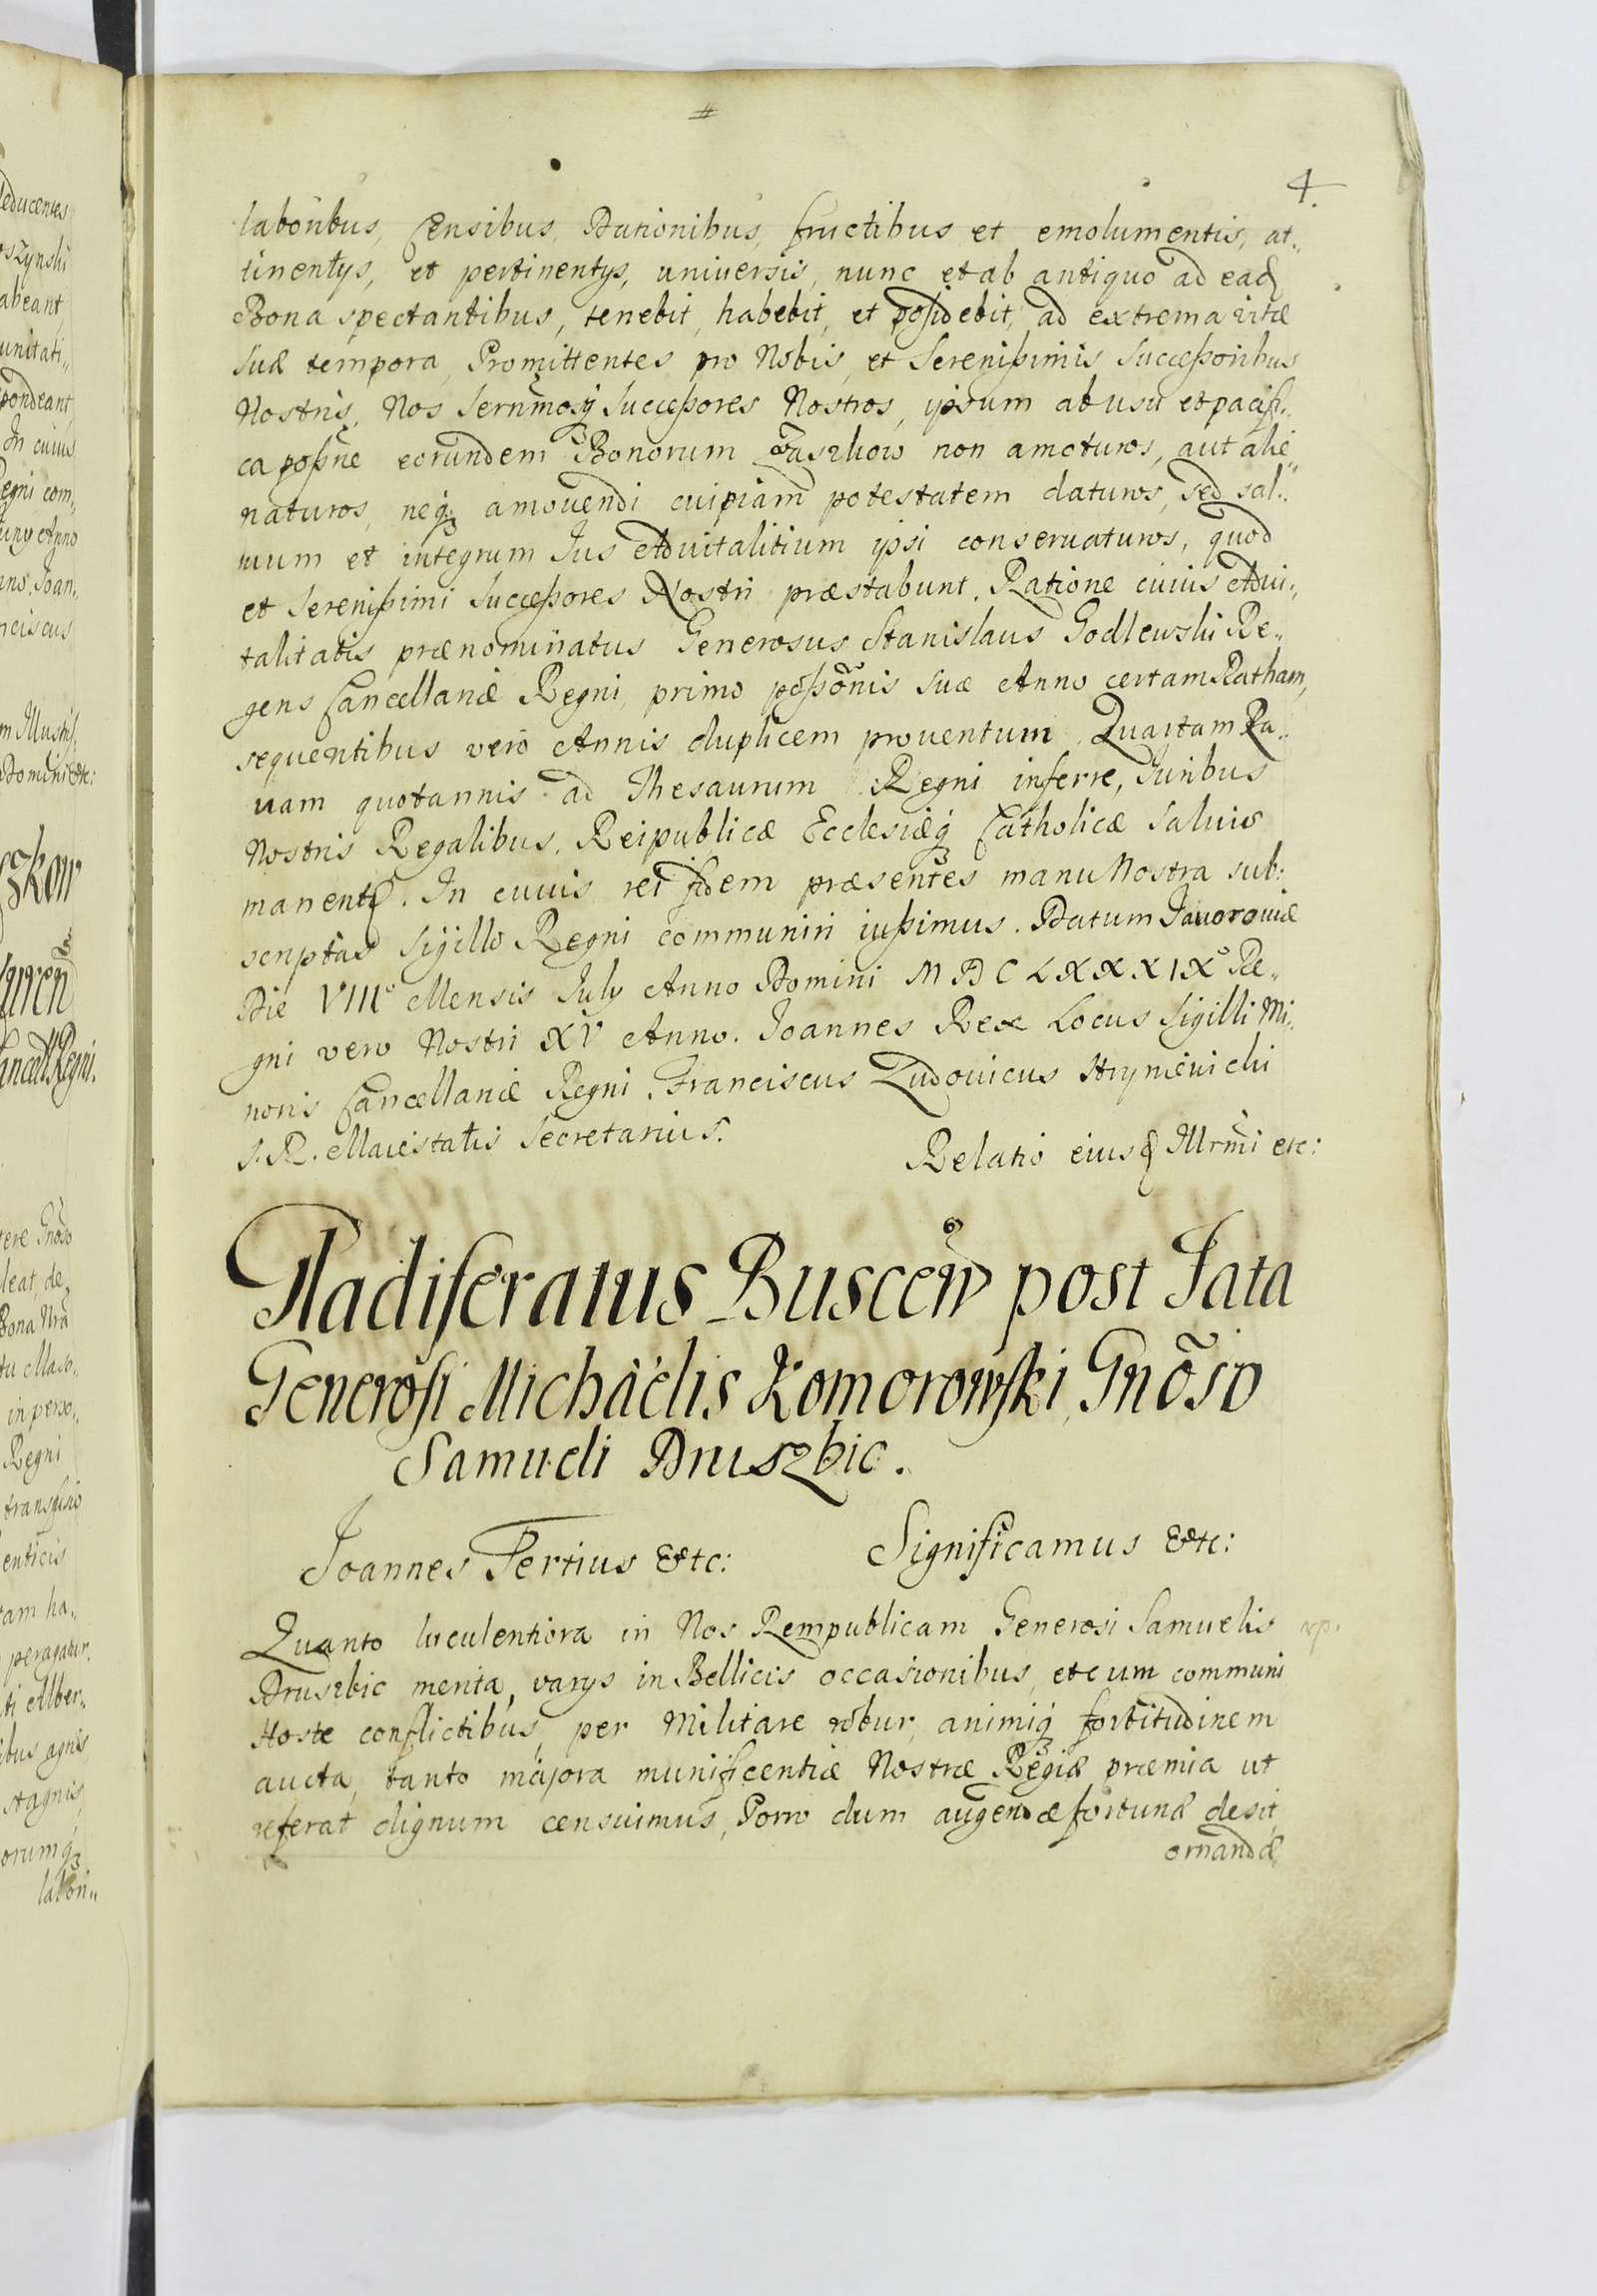 #
4.
laboribus, Censibus, Dationibus, fructibus et emolumentis, at„
tinentÿs, et pertinentÿs, universis, nunc et ab antiquo ad ead
Bona spectantibus, tenebit, habebit, et poßidebit, ad extrema vitæ
suæ tempora, Promittentes pro Nobis, et Sereníßimis Succeßoribus
Nostris, Nos Sernmosq Succeßores Nostros, ipsum ab usu et pacifi„
ca poßne eorundem Bonorum non amoturos, aut alie„
naturos, neq amovendi cuipiam potestatem daturos, sed sal„
uum et integrum Ius Aduitalitium ipsi conseruaturos, quod
et Sereníßimi Succeßores Nostri præstabunt. Ratione cuius Adui„
talitatis prænominatus Generosus Stanislaus Godlewski Re„
gens Cancellariæ Regni, primo poßonis suæ Anno certam Ratham,
sequentibus vero Annis duplicem prouentum Quartam
uam quotannis ad Thesaurum Regni inferre, Iuribus
Nostris Regalibus, Reipublicæ Ecclesiæq Catholicæ Saluis
manent. In cuius rei fidem præsentes manu Nostra sub:
scriptas Sigillo Regni communiri iußimus. Datum Iauorouiæ
Die VIII° Mensis Iuly Anno Domini MDCLXXXIX° Re„
gni vero Nostri XV Anno. Ioannes Rex Locus Sigilli Mi„
noris Cancellariæ Regni. Franciscus Ludovicus
S. R. Maiestatis Secretarius.
Relatio eiusd Illrmi etc:
Gladiferatus Buscen post Fata
Generosi Michaelis Komorowski, Gnoso
Samueli Druszbic.
Joannes Tertius Etc: Significamus Etc:
Quanto luculentiora in Nos Rempublicam Generosi Samuelis
Druszbic merita, varÿs in Bellicis occasionibus, et cum communi
Hoste conflictibus, per Militare robur, animiq fortitudinem
aucta, tanto majora munificentiæ Nostræ Regiæ præmia ut
referat dignum censuimus, Porro dum augendæ fortunæ desit,
ornandæ